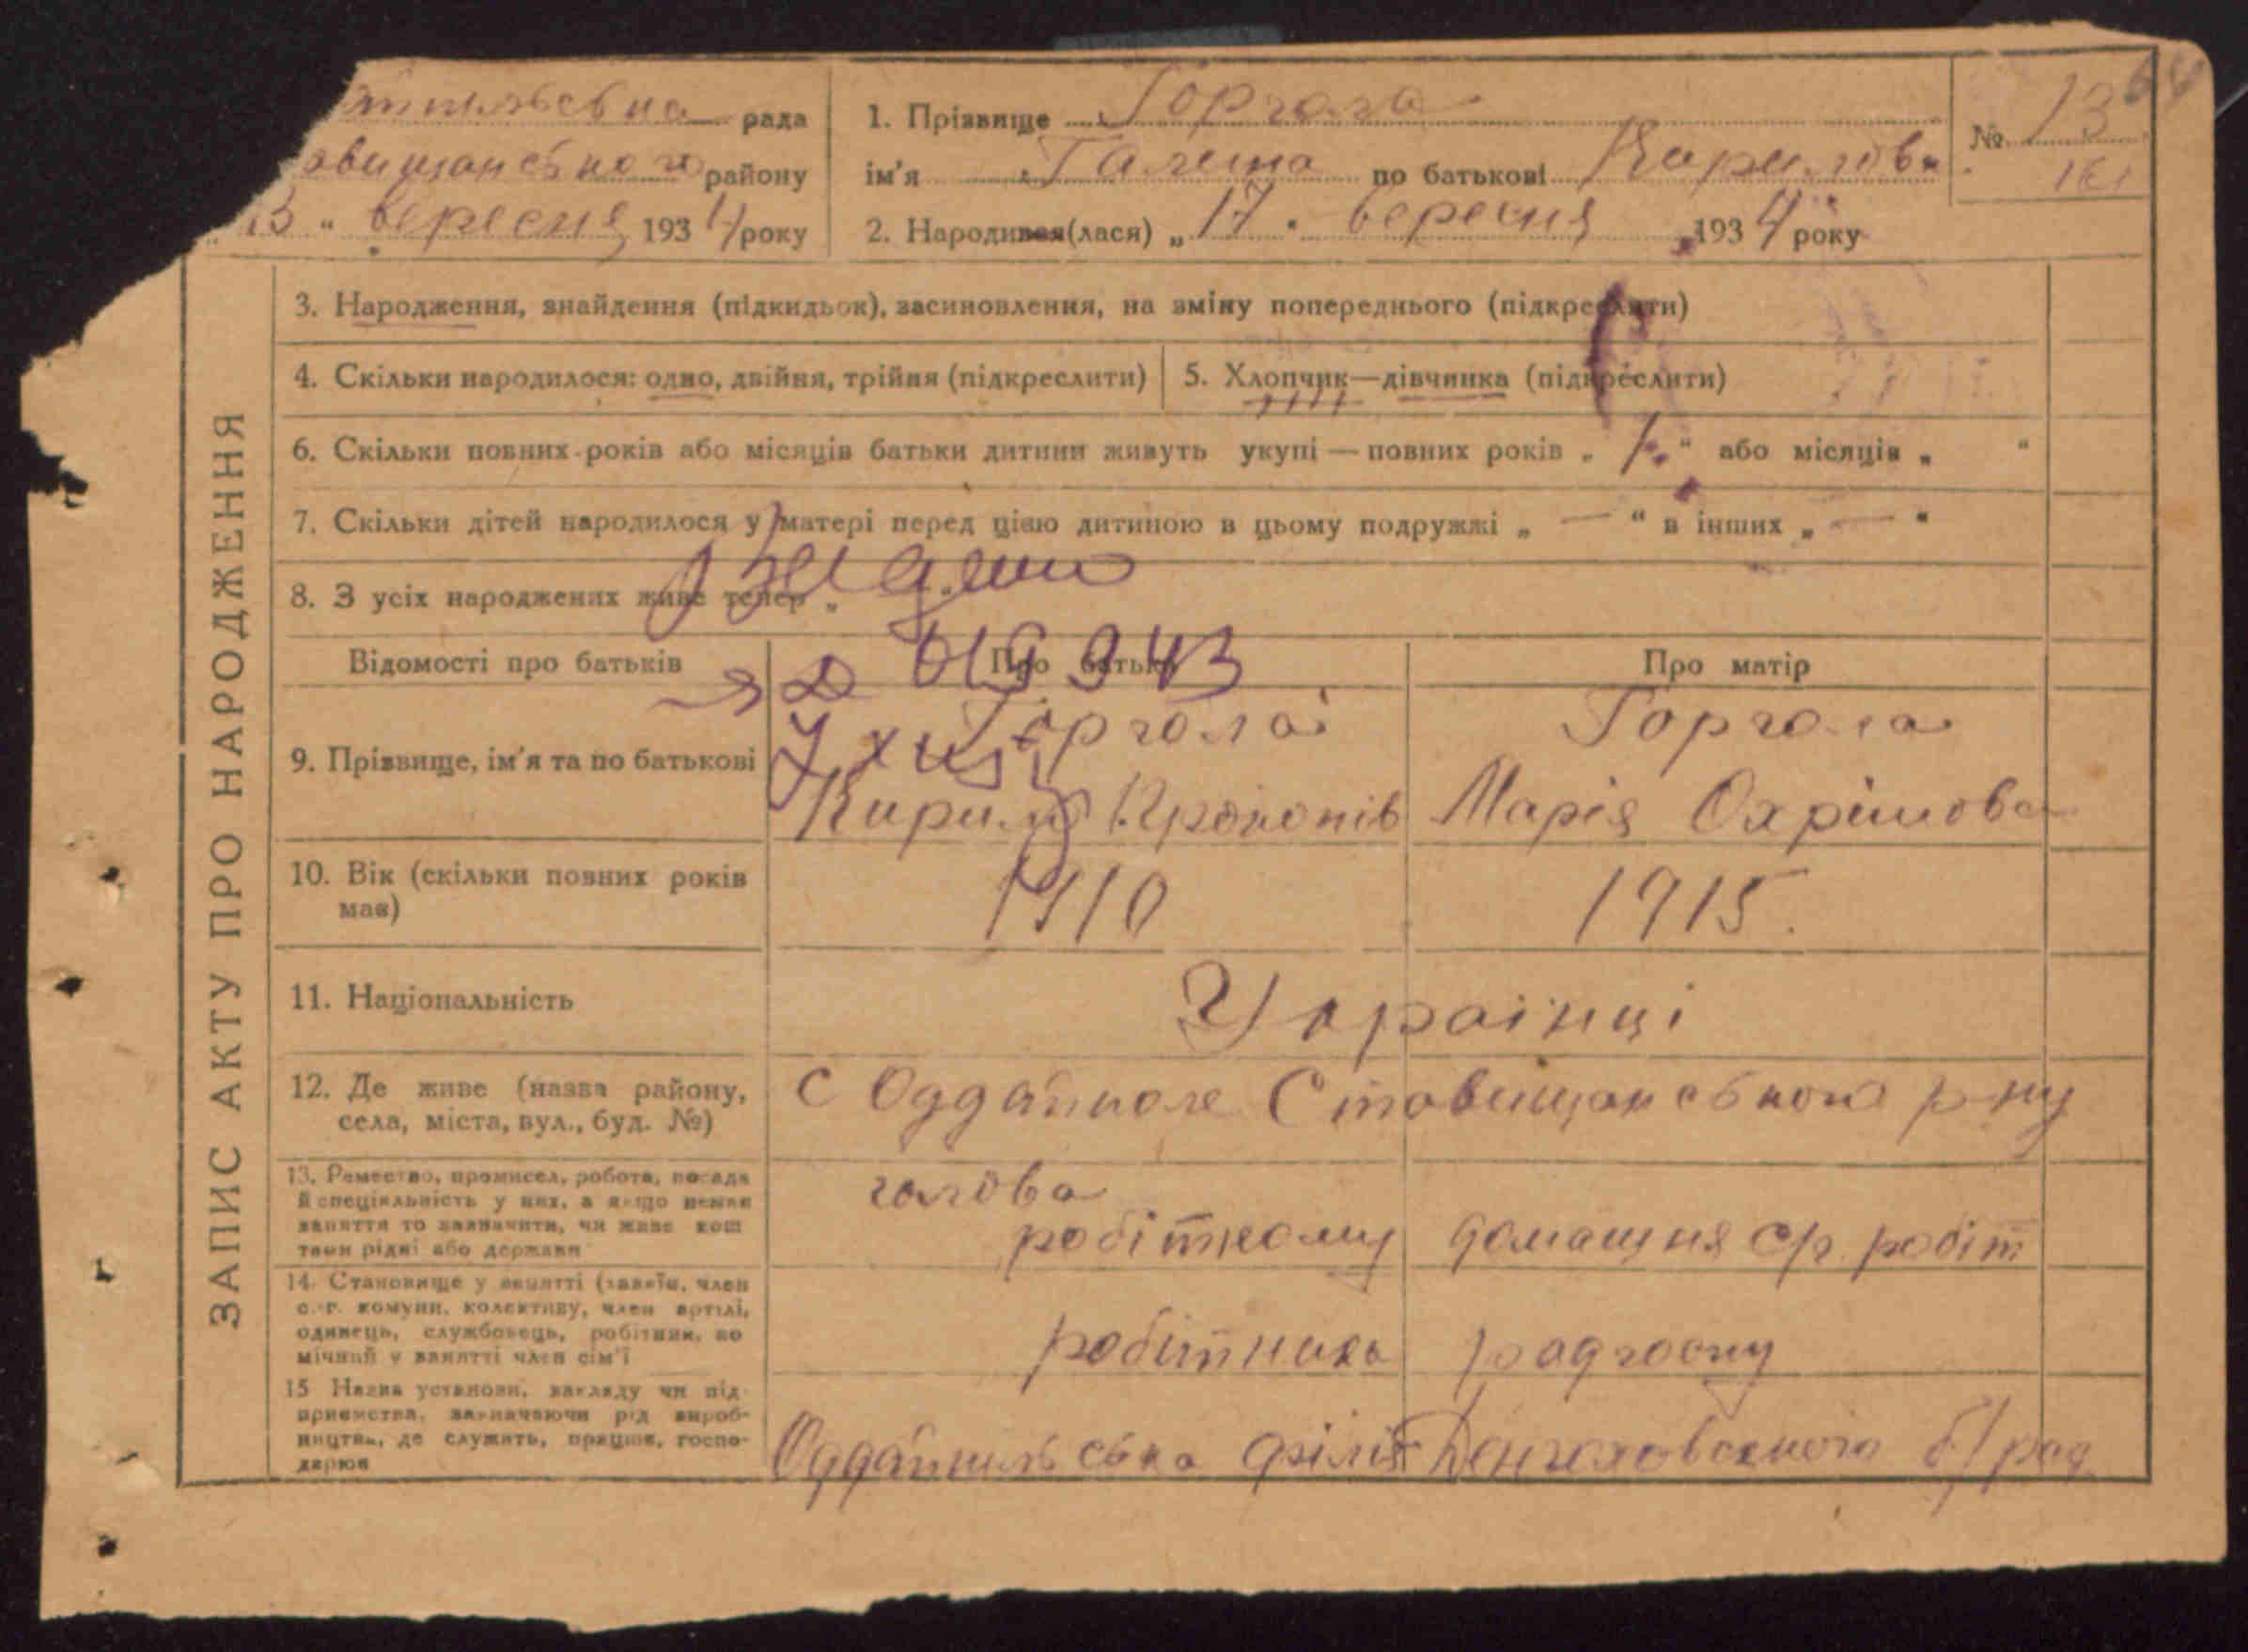 рада
1. Прізвище Горгола
№ 13
161
району
ім'я Галина по батькові Кирилова
вересня 1934 року
2. Народився(лася) „17" вересня 1934 року
ЗАПИС АКТУ ПРО НАРОДЖЕННЯ
3. Народження, знайдення (підкидьок), засиновлення, на зміну попереднього (підкреслити)
4. Скільки народилося: одно, двійня, трійня (підкреслити)
5. Хлопчик—дівчинка (підкреслити)
6. Скільки повних років або місяців батьки дитини живуть укупі — повних років „ 1. " або місяців „ "
7. Скільки дітей народилося у матері перед цією дитиною в цьому подружжі „ — " в інших „ — "
8. З усіх народжених живе тепер „
Відомості про батьків
Про батька
Про матір
9. Прізвище, ім'я та по батькові
Горгола
Кирило Прокопів
Горгола
Марія Охрімова
10. Вік (скільки повних років має)
1910
1915.
11. Національність
Українці
12. Де живе (назва району, села, міста, вул., буд. №)
с Оддайполе Ставищанського р-ну
13. Ремество, промисел, робота, посада й спеціяльність у них, а якщо немає заняття то зазначити, чи живе коштами рідні або держави
голова
робіткому
домашня с/г. робіт
14. Становище у занятті (хазяїн, член с.-г. комуни, колективу, член артілі, одинець, службовець, робітник, помічний у занятті член сім'ї
робітники радгоспу
15 Назва установи, закладу чи підприємства, зазначаючи рід виробництва, де служить, працює, господарює
філія б/рад